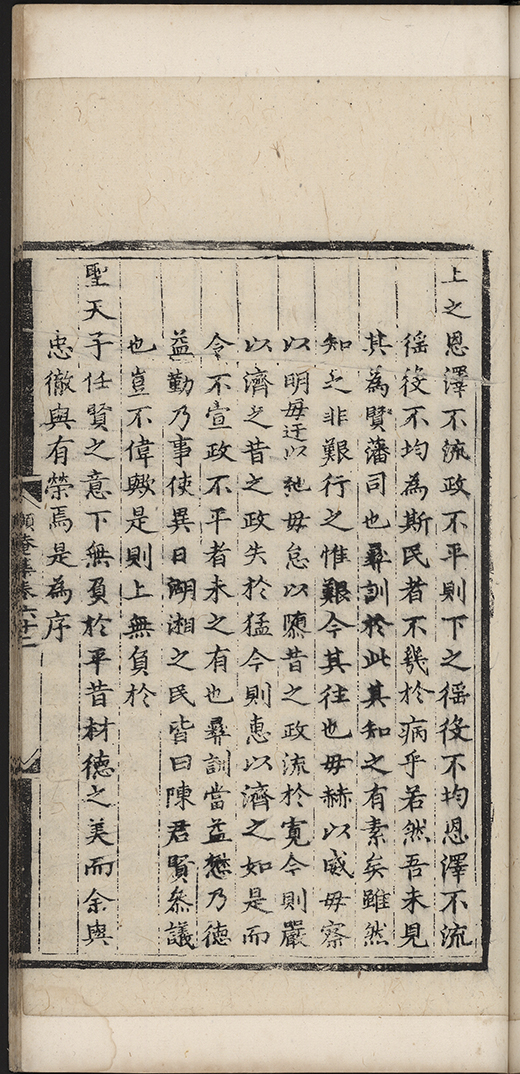 上之恩澤不流政不平則下之徭役不均恩澤不流
徭役不均為斯民者不幾於病乎若然吾未見
其為賢藩司也彞訓於此其知之有素矣雖然
知之非艱行之惟艱今其往也毋赫以威毋察
以明毋迂以弛毋怠以隳昔之政流於寛今則嚴
以濟之昔之政失於猛今則惠以濟之如是而
令不宣政不平者未之有也彞訓當益懋乃德
益勤乃事使異日湖湘之民皆曰陳君賢叅議
也豈不偉歟是則上無負於
聖天子任賢之意下無負於平昔材德之美而余與
忠徹與有榮焉是為序
頤菴集卷六 十二